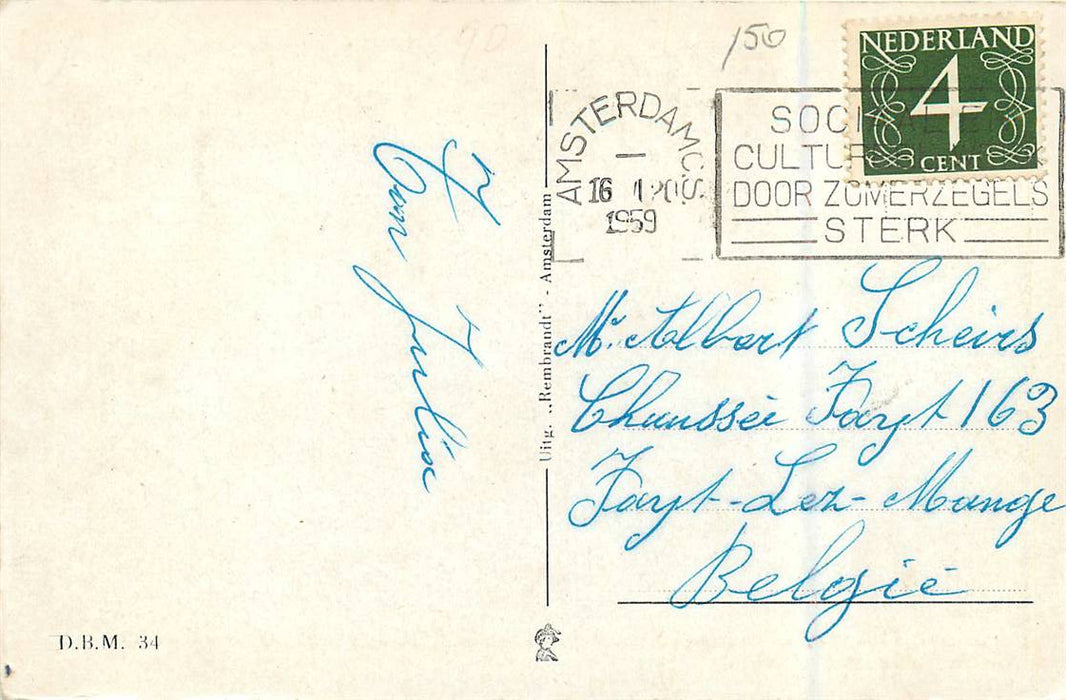 150
NEDERLAND
4
CENT
AMSTERDAM C.S.
16
1959
SOCI
CULTUR
DOOR ZOMERZEGELS
STERK
Mr. Albert Scheirs
Chaussée Fayt 163
Fayt-Lez-Mange
België
Uitg. „Rembrandt" - Amsterdam
Julia
D.B.M. 34